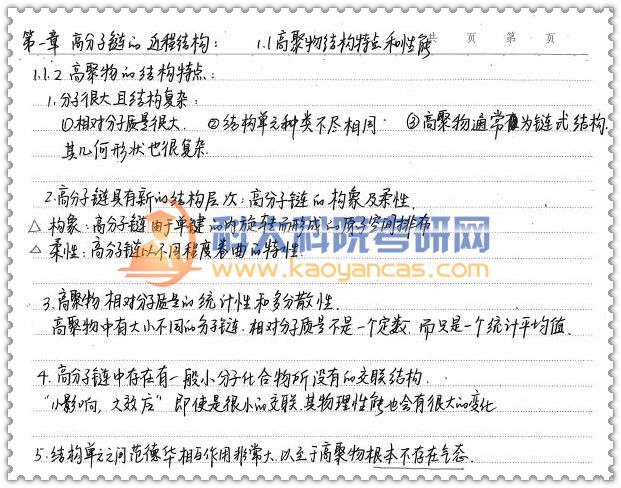 共 页 第 页
第一章 高分子链的近程结构: 1.1高聚物结构特点和性能
1.1.2 高聚物的结构特点:
1.分子很大且结构复杂:
①相对分子质量很大. ②结构单元种类不尽相同. ③高聚物通常为链式结构.
其几何形状也很复杂.
2.高分子链具有新的结构层次:高分子链的构象及柔性.
△ 构象:高分子链由于单键的内旋转而形成的原子空间排布
△ 柔性:高分子链以不同程度卷曲的特性.
科大科院考研网
www.kaoyancas.com
3.高聚物相对分子质量的统计性和多分散性.
高聚物中有大小不同的分子链.相对分子质量不是一个定数,而只是一个统计平均值.
4.高分子链中存在有一般小分子化合物所没有的交联结构.
"小影响,大效应" 即使是很小的交联,其物理性能也会有很大的变化
5.结构单元之间范德华相互作用非常大,以至于高聚物根本不存在气态.